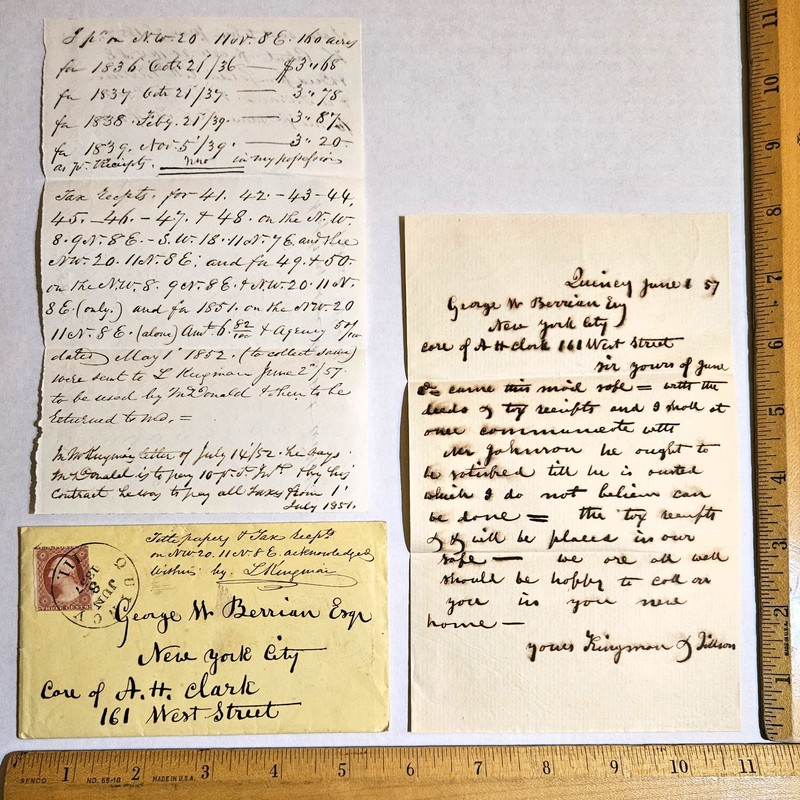 I pd on N.W. 20 11 N. 8 E. 160 acres
for 1836 Octr 21/36 — $3.68
for 1837 Octr 21/37 — 3.78
for 1838. Feby. 21/39. — 3.87
for 1839. Nov. 5/39. — 3.20
as pr. Receipts. now in my possession
Tax Receipts. for 41. 42. - 43 - 44,
45. - 46. - 47. & 48. on the N.W.
8. 9 N. 8 E. - S.W. 18. 11 N. 7 E and the
N.W. 20. 11 N. 8 E; and for 49. & 50.
on the N.W. 8. 9 N. 8 E & N.W. 20. 11 N.
8 E. (only.) and for 1851. on the N.W. 20
11 N. 8 E. (alone) Amt. 6. 82/100 & Agency
dated May 1 1852. (to collect same)
were sent to L Kingman June 2d/57.
to be used by McDonald & then to be
returned to me. =
In Mr Kingman letter of July 14/52. he says
McDonald is to pay 10 & by his
contract he was to pay all taxes from 1
July 1851.
Quincy June 8 57
George W Berrian Esq
New York City
Care of A H Clark 161 West Street
Sir yours of June
2d came this mail safe = with the
deeds & tax receipts and I shall at
once communicate with
Mr Johnson he ought to
be satisfied till he is ousted
which I do not believe can
be done = the tax receipts
& & will be places in our
safe — we are all well
should be happy to call on
you in you new
home —
yours Kingman & Jillson
Title papers & Tax Receipts
on N.W. 20. 11 N. 8 E. acknowledged
within by L Kingman
QUINCY ILL.
JUN
8
1857
George W Berrian Esqr
New York City
Care of A. H. Clark
161 West Street
1 2 3 4 5 6 7 8 9 10 11
SENCO NO. 55-18 MADE IN U.S.A.
11
10
9
8
7
6
5
4
3
2
1